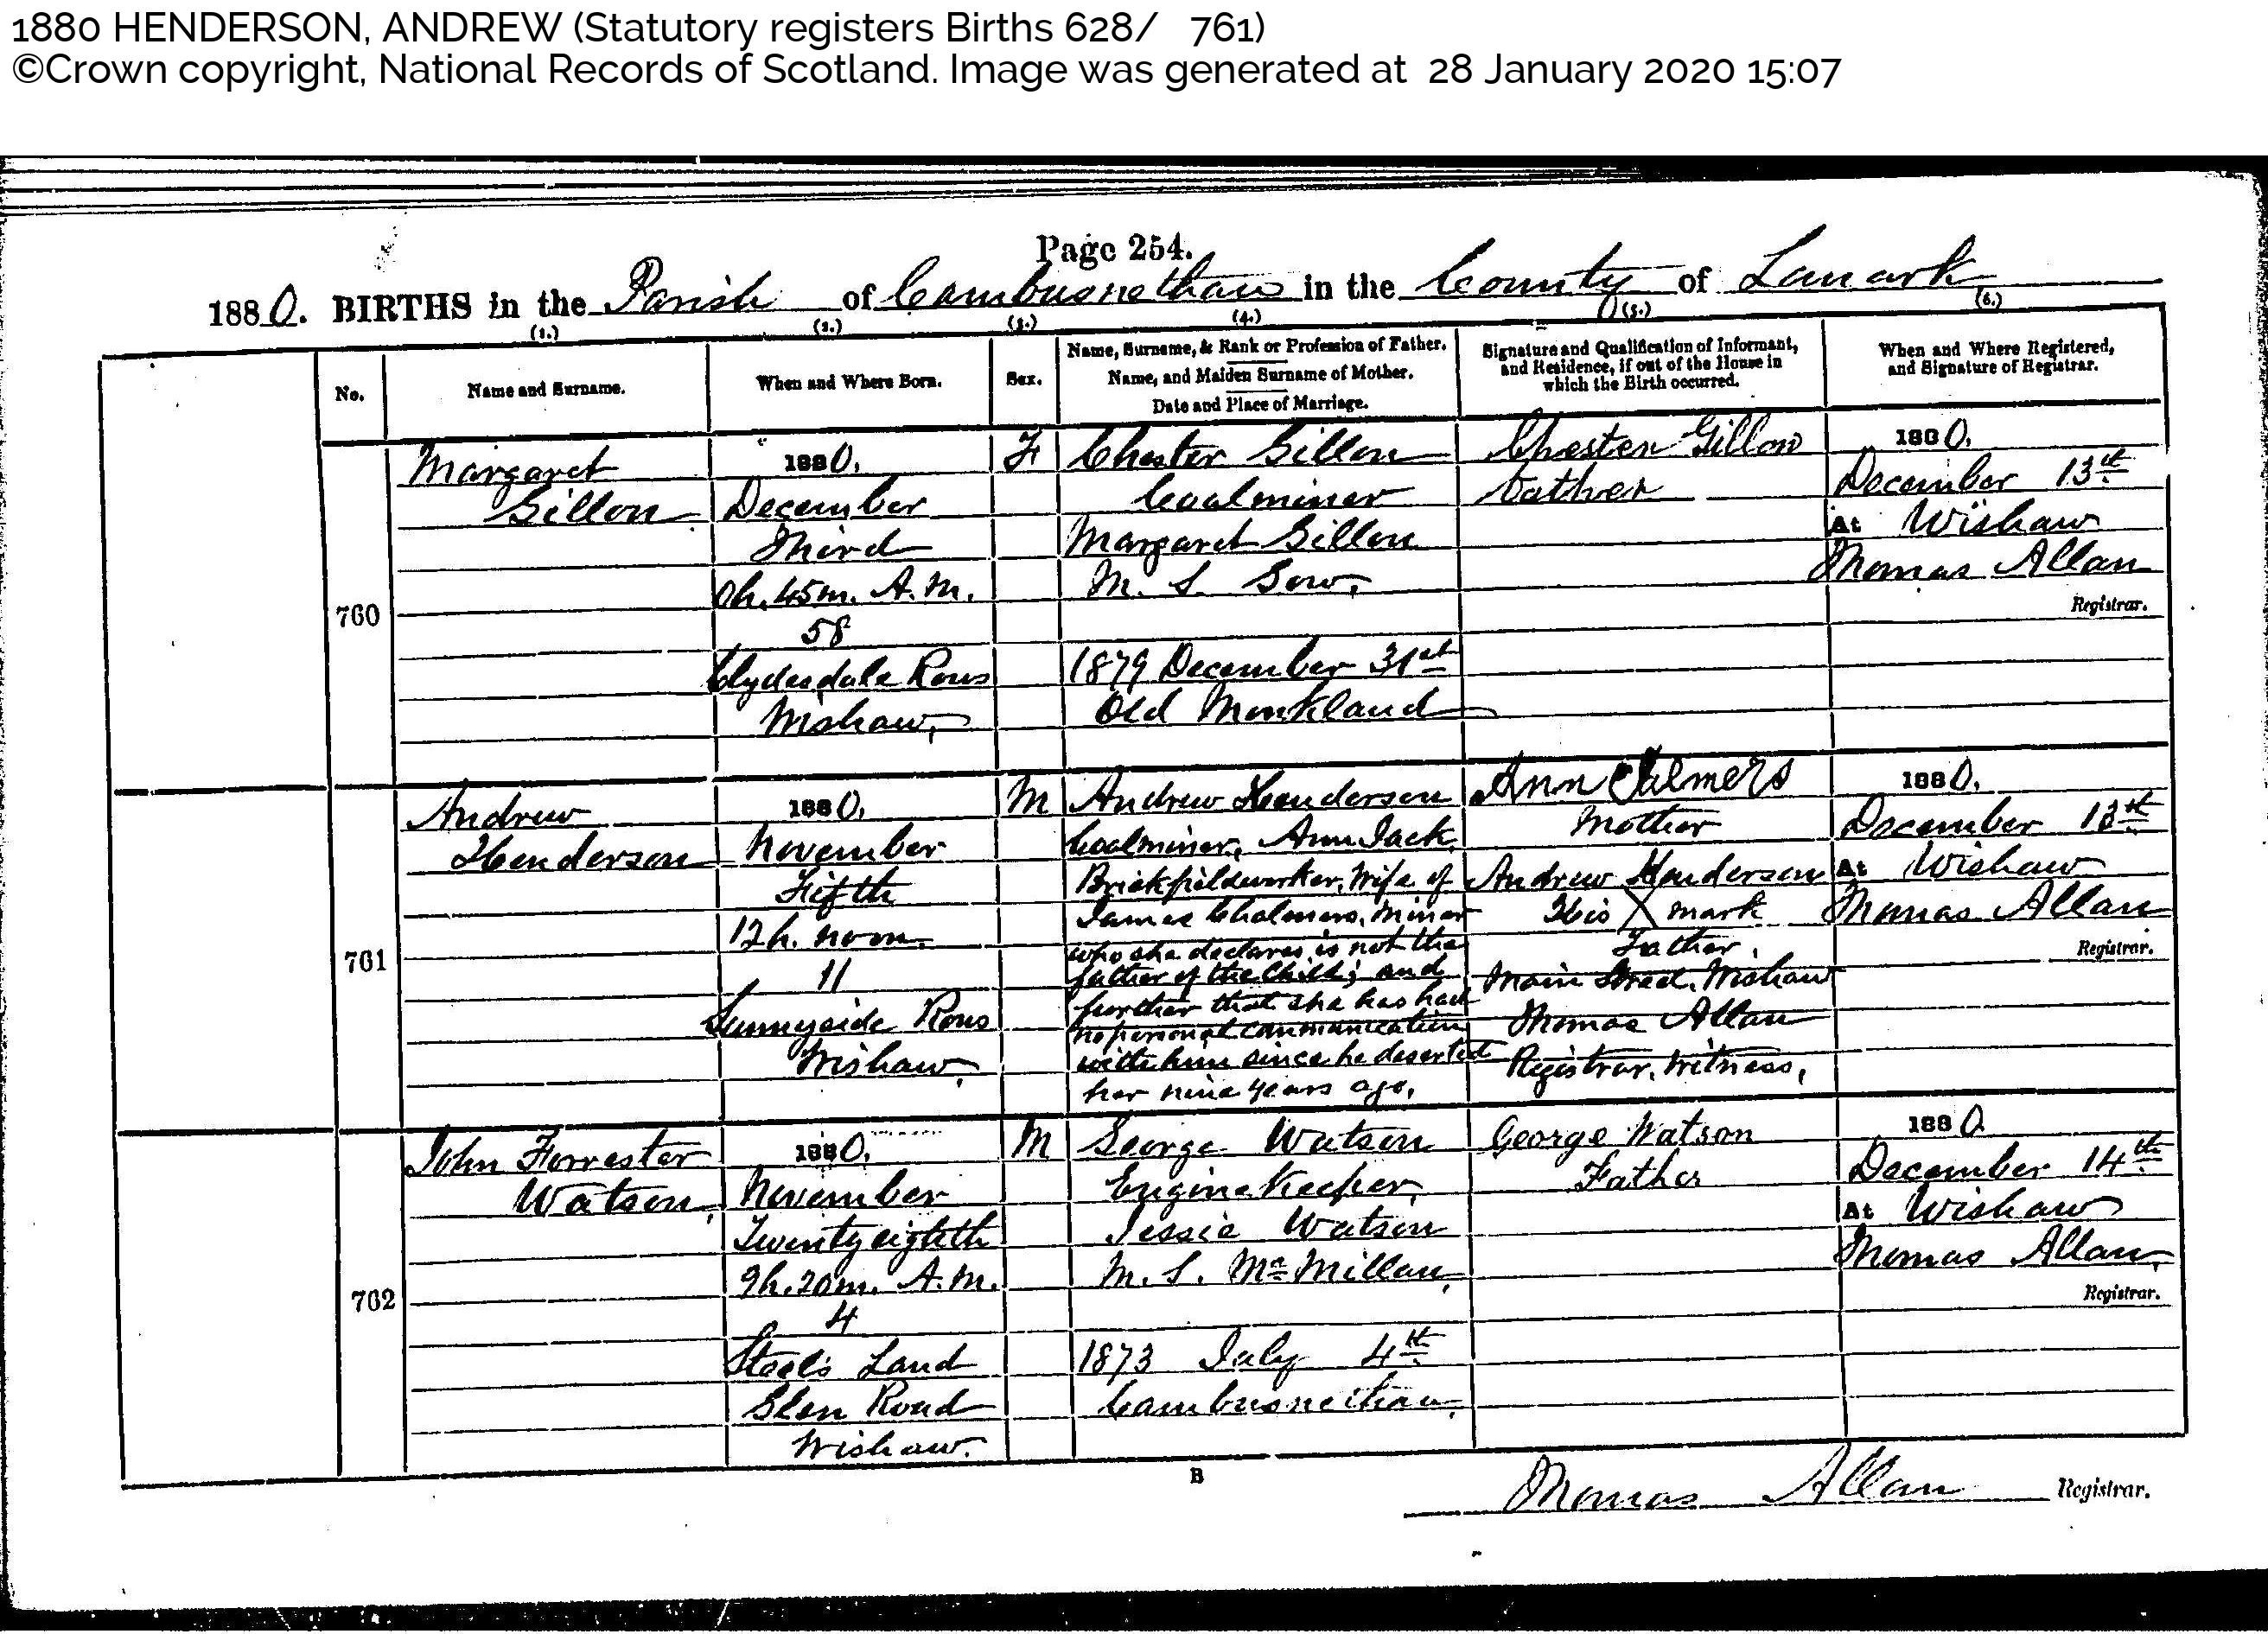 1880 HENDERSON, ANDREW (Statutory registers Births 628/ 761)
©Crown copyright, National Records of Scotland. Image was generated at 28 January 2020 15:07
Page 254.
1880. BIRTHS in the Parish of Cambusnethan in the County of Lanark
(1.) (2.) (3.) (4.) (5.) (6.)
No.
Name and Surname.
When and Where Born.
Sex.
Name, Surname, & Rank or Profession of Father.
Name, and Maiden Surname of Mother.
Date and Place of Marriage.
Signature and Qualification of Informant,
and Residence, if out of the House in
which the Birth occurred.
When and Where Registered,
and Signature of Registrar.
760
Margaret
Gillon
1880.
December
Third
0h. 45m. A.M.
58
Clydesdale Rows
Wishaw,
F
Chester Gillon
Coalminer
Margaret Gillon
M. S. Gow,
1879 December 31st
Old Monkland
Chester Gillon
Father
1880.
December 13th
At Wishaw
Thomas Allan
Registrar.
761
Andrew
Henderson
1880.
November
Fifth
12h. noon.
11
Sunnyside Rows
Wishaw,
M
Andrew Henderson
Coalminer, Ann Jack,
Brickfieldworker, Wife of
James Chalmers, Miner
who she declares is not the
father of the Child; and
further that she has had
no personal communication
with him since he deserted
her nine years ago.
Ann Chlmers
Mother
Andrew Henderson
His X mark
Father.
Main Street, Wishaw
Thomas Allan
Registrar, Witness,
1880.
December 13th
At Wishaw
Thomas Allan
Registrar.
762
John Forrester
Watson,
1880.
November
Twenty eighth
9h. 20m. A.M.
4
Steel's Land
Glen Road
Wishaw.
M
George Watson
Engine Keeper,
Jessie Watson
M. S. McMillan,
1873 July 4th
Cambusnethan,
George Watson
Father
1880
December 14th
At Wishaw
Thomas Allan,
Registrar.
B
Thomas Allan Registrar.